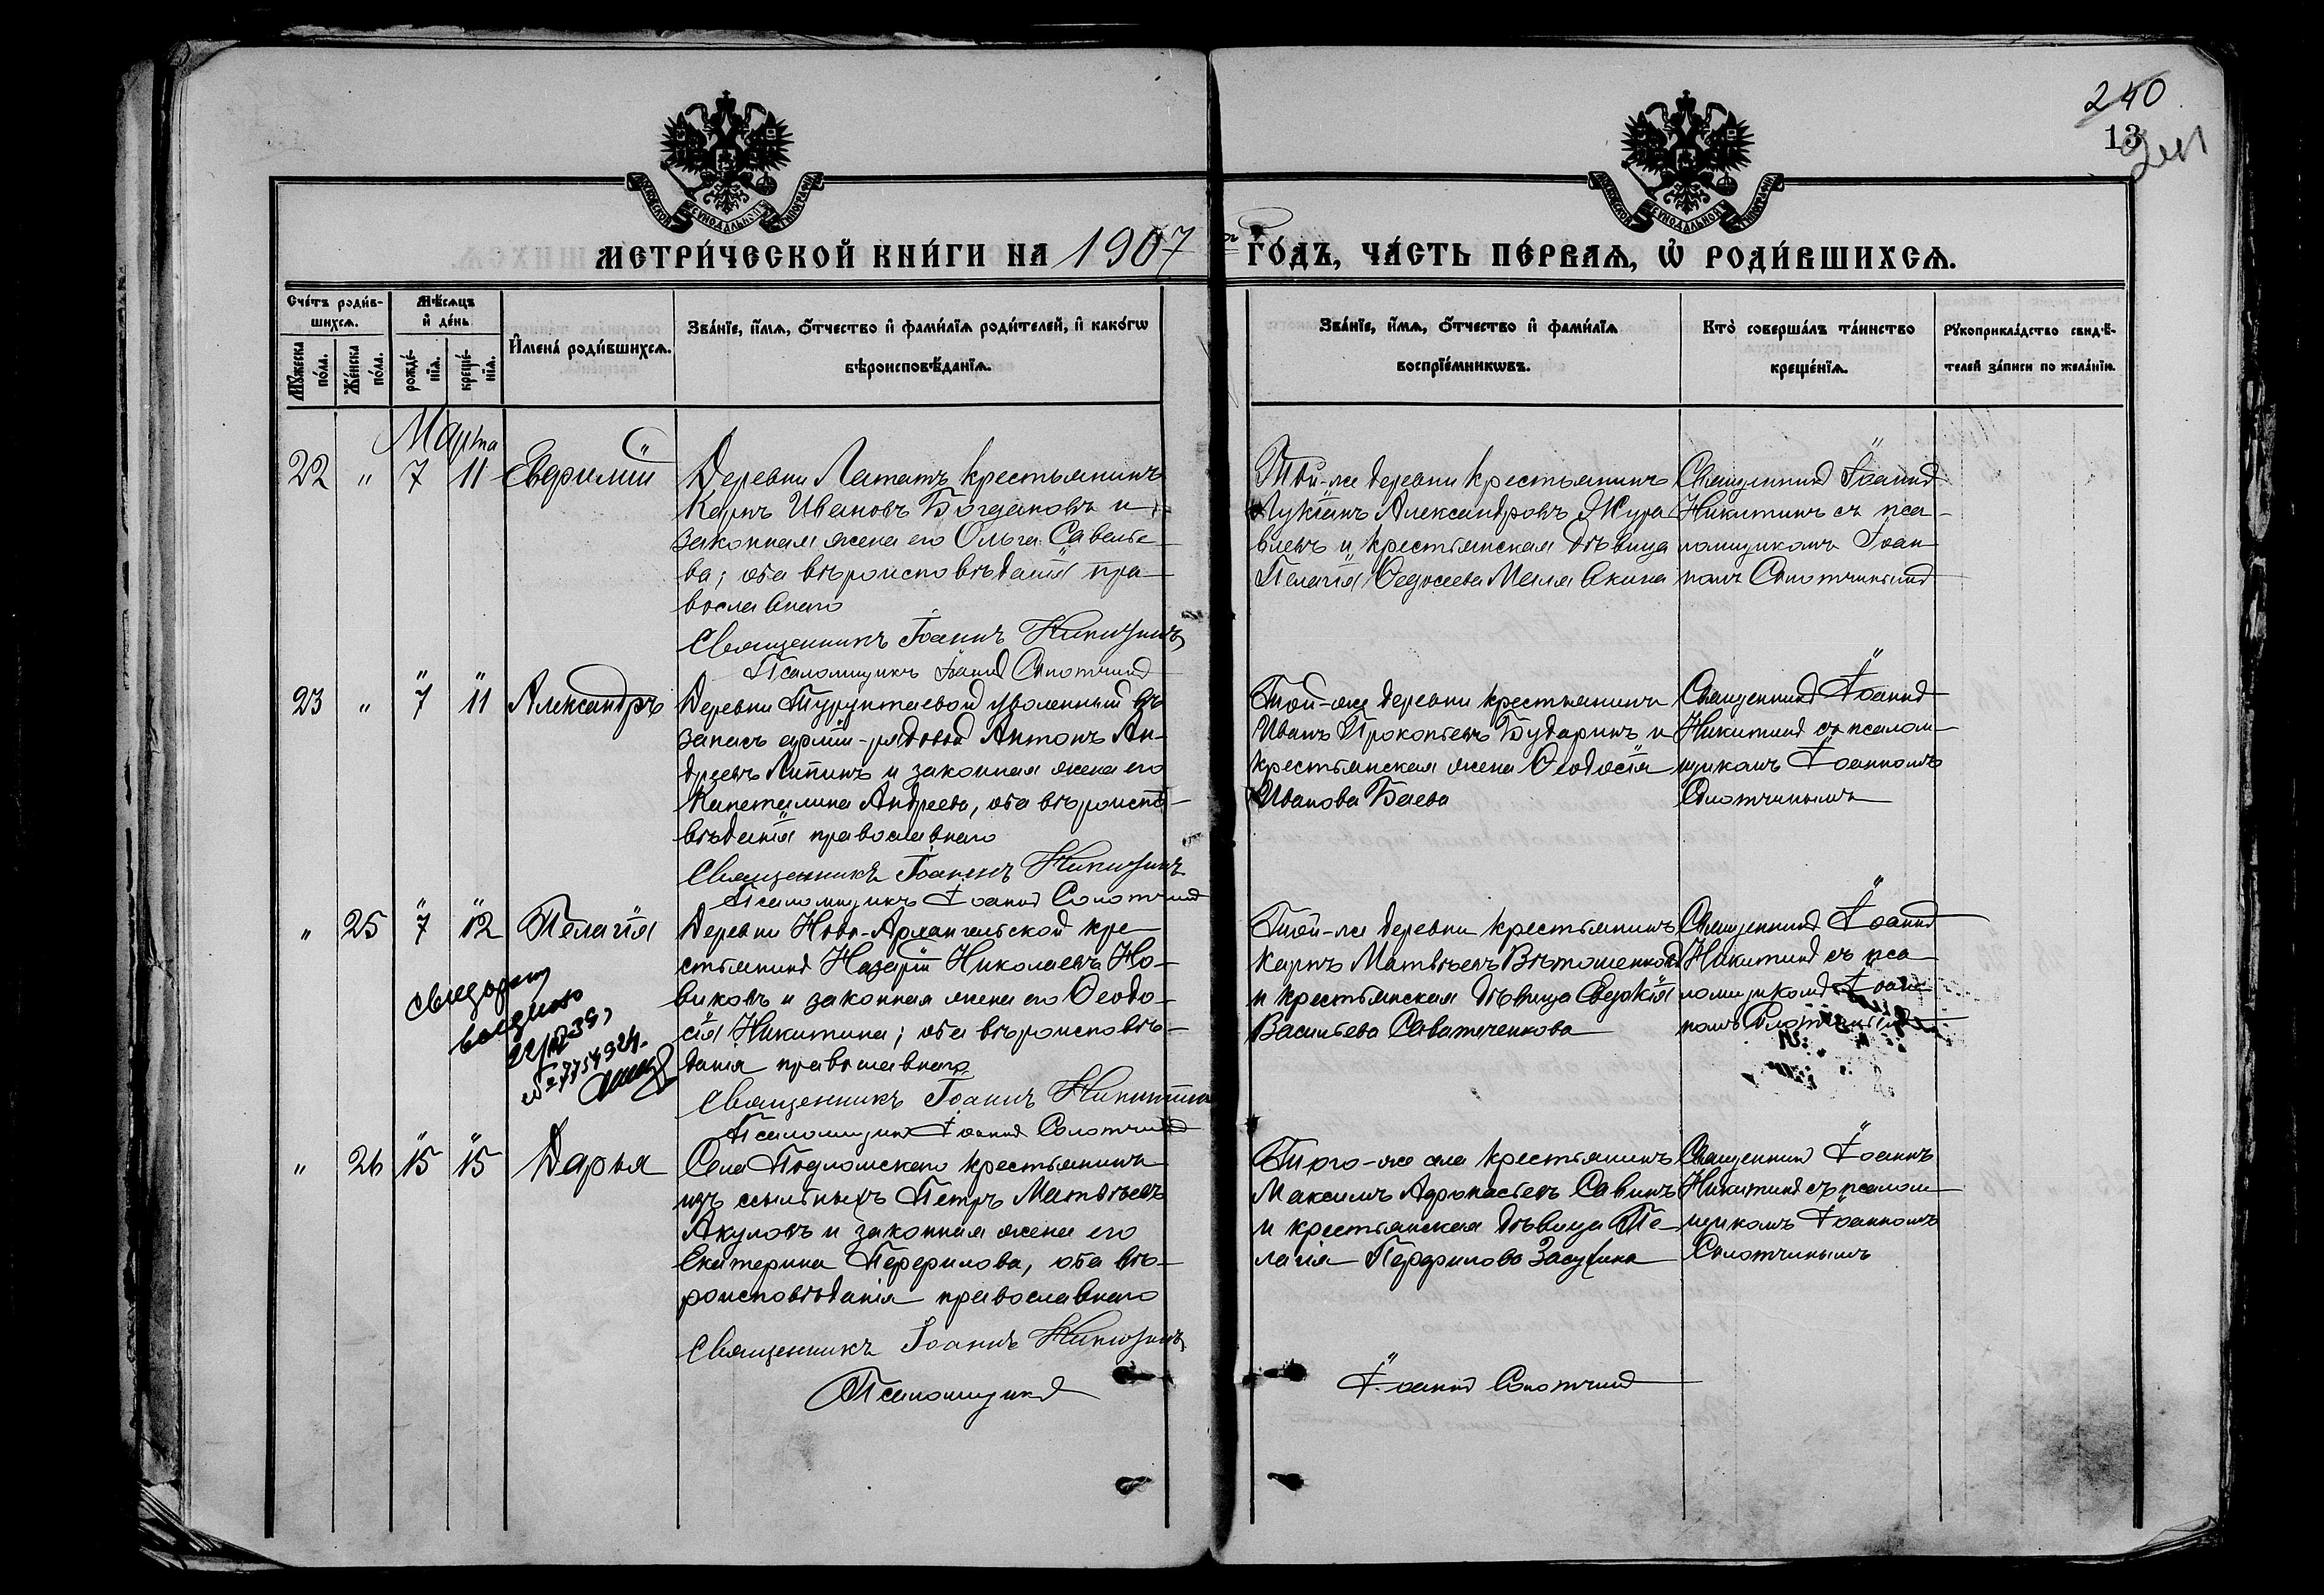 240
13
241
МОСКОВСКОЙ СУНОДАЛЬНОЙ ТИПОГРАФІИ
МОСКОВСКОЙ СУНОДАЛЬНОЙ ТИПОГРАФІИ
МЕТРИ́ЧЕСКОЙ КНИ́ГИ НА 1907 ГО́ДЪ, ЧА́СТЬ ПЕ́РВАѦ, Ѡ҆ РОДИ́ВШИХСѦ.
Сче́тъ роди́в-
шихсѧ.
Мꙋ́жеска по́ла.
Же́нска по́ла.
Мѣ́сѧцъ и҆ де́нь
рожде́-нїѧ.
креще́-нїѧ.
И҆мена̀ роди́вшихсѧ.
Зва́нїе, и҆́мѧ, ѻ҆́тчество и҆ фами́лїѧ роди́телей, и҆ како́гѡ
вѣроисповѣ́данїѧ.
Зва́нїе, и҆́мѧ, ѻ҆́тчество и҆ фами́лїѧ
воспрїе́мникѡвъ.
Кто̀ соверша́лъ та́инство
креще́нїѧ.
Рꙋкоприкла́дство свидѣ́-
телей за́писи по жела́нїю.
Марта
22 " 7 11 Евфимій
Деревни Лататъ крестьянинъ
Карпъ Ивановъ Богдановъ и
законная жена его Ольга Савелье-
ва; оба вѣроисповѣданія пра-
вославнаго
Священникъ Іоаннъ Никитинъ
Псаломщикъ Іоаннъ Солотчинъ
Той-же деревни крестьянинъ
Лукіанъ Александровъ Жура
влевъ и крестьянская дѣвица
Пелагія Ѳедосеева
Священникъ Іоаннъ
Никитинъ съ пса-
ломщикомъ Іоан-
номъ Солотчинымъ
23 " " 7 " 11 Александръ
Деревни Турунтаевой уволенный въ
запасъ арміи-рядовой Антонъ Ан-
дреевъ Липинъ и законная жена его
Капеталина Андреева, оба вѣроиспо-
вѣданія православнаго
Священникъ Іоаннъ Никитинъ
Псаломщикъ Іоаннъ Солотчинъ
Той-же деревни крестьянинъ
Иванъ Прокопьевъ Бударинъ и
крестьянская жена Ѳеодосія
Иванова Баева
Священникъ Іоаннъ
Никитинъ съ псалом-
щикомъ Іоанномъ
Солотчинымъ
" 25 " 7 " 12 Пелагія
Деревни Ново-Архангельской кре-
стьянинъ Назарій Николаевъ Но-
виковъ и законная жена его Ѳеодо-
сія Никитина; оба вѣроисповѣ-
данія православнаго
Священникъ Іоаннъ Никитинъ
Псаломщикъ Іоаннъ Солотчинъ
Той-же деревни крестьянинъ
Карпъ Матвѣевъ Вѣтошенковъ
и крестьянская дѣвица Евдокія
Васильева Саватеенкова
Священникъ Іоаннъ
Никитинъ съ пса-
ломщикомъ Іоан-
номъ Солотчинымъ
" 26 " 15 " 15 Дарья
Села Подломскаго крестьянинъ
изъ ссыльныхъ Петръ Матвѣевъ
Акуловъ и законная жена его
Екатерина Перфилова, оба вѣ-
роисповѣданія православнаго
Священникъ Іоаннъ Никитинъ
Псаломщикъ Іоаннъ Солотчинъ
Того-же села крестьянинъ
Максимъ Афонасьевъ Савинъ
и крестьянская дѣвица Пе-
лагія Перфилова Засухина
Священникъ Іоаннъ
Никитинъ съ псалом-
щикомъ Іоанномъ
Солотчинымъ